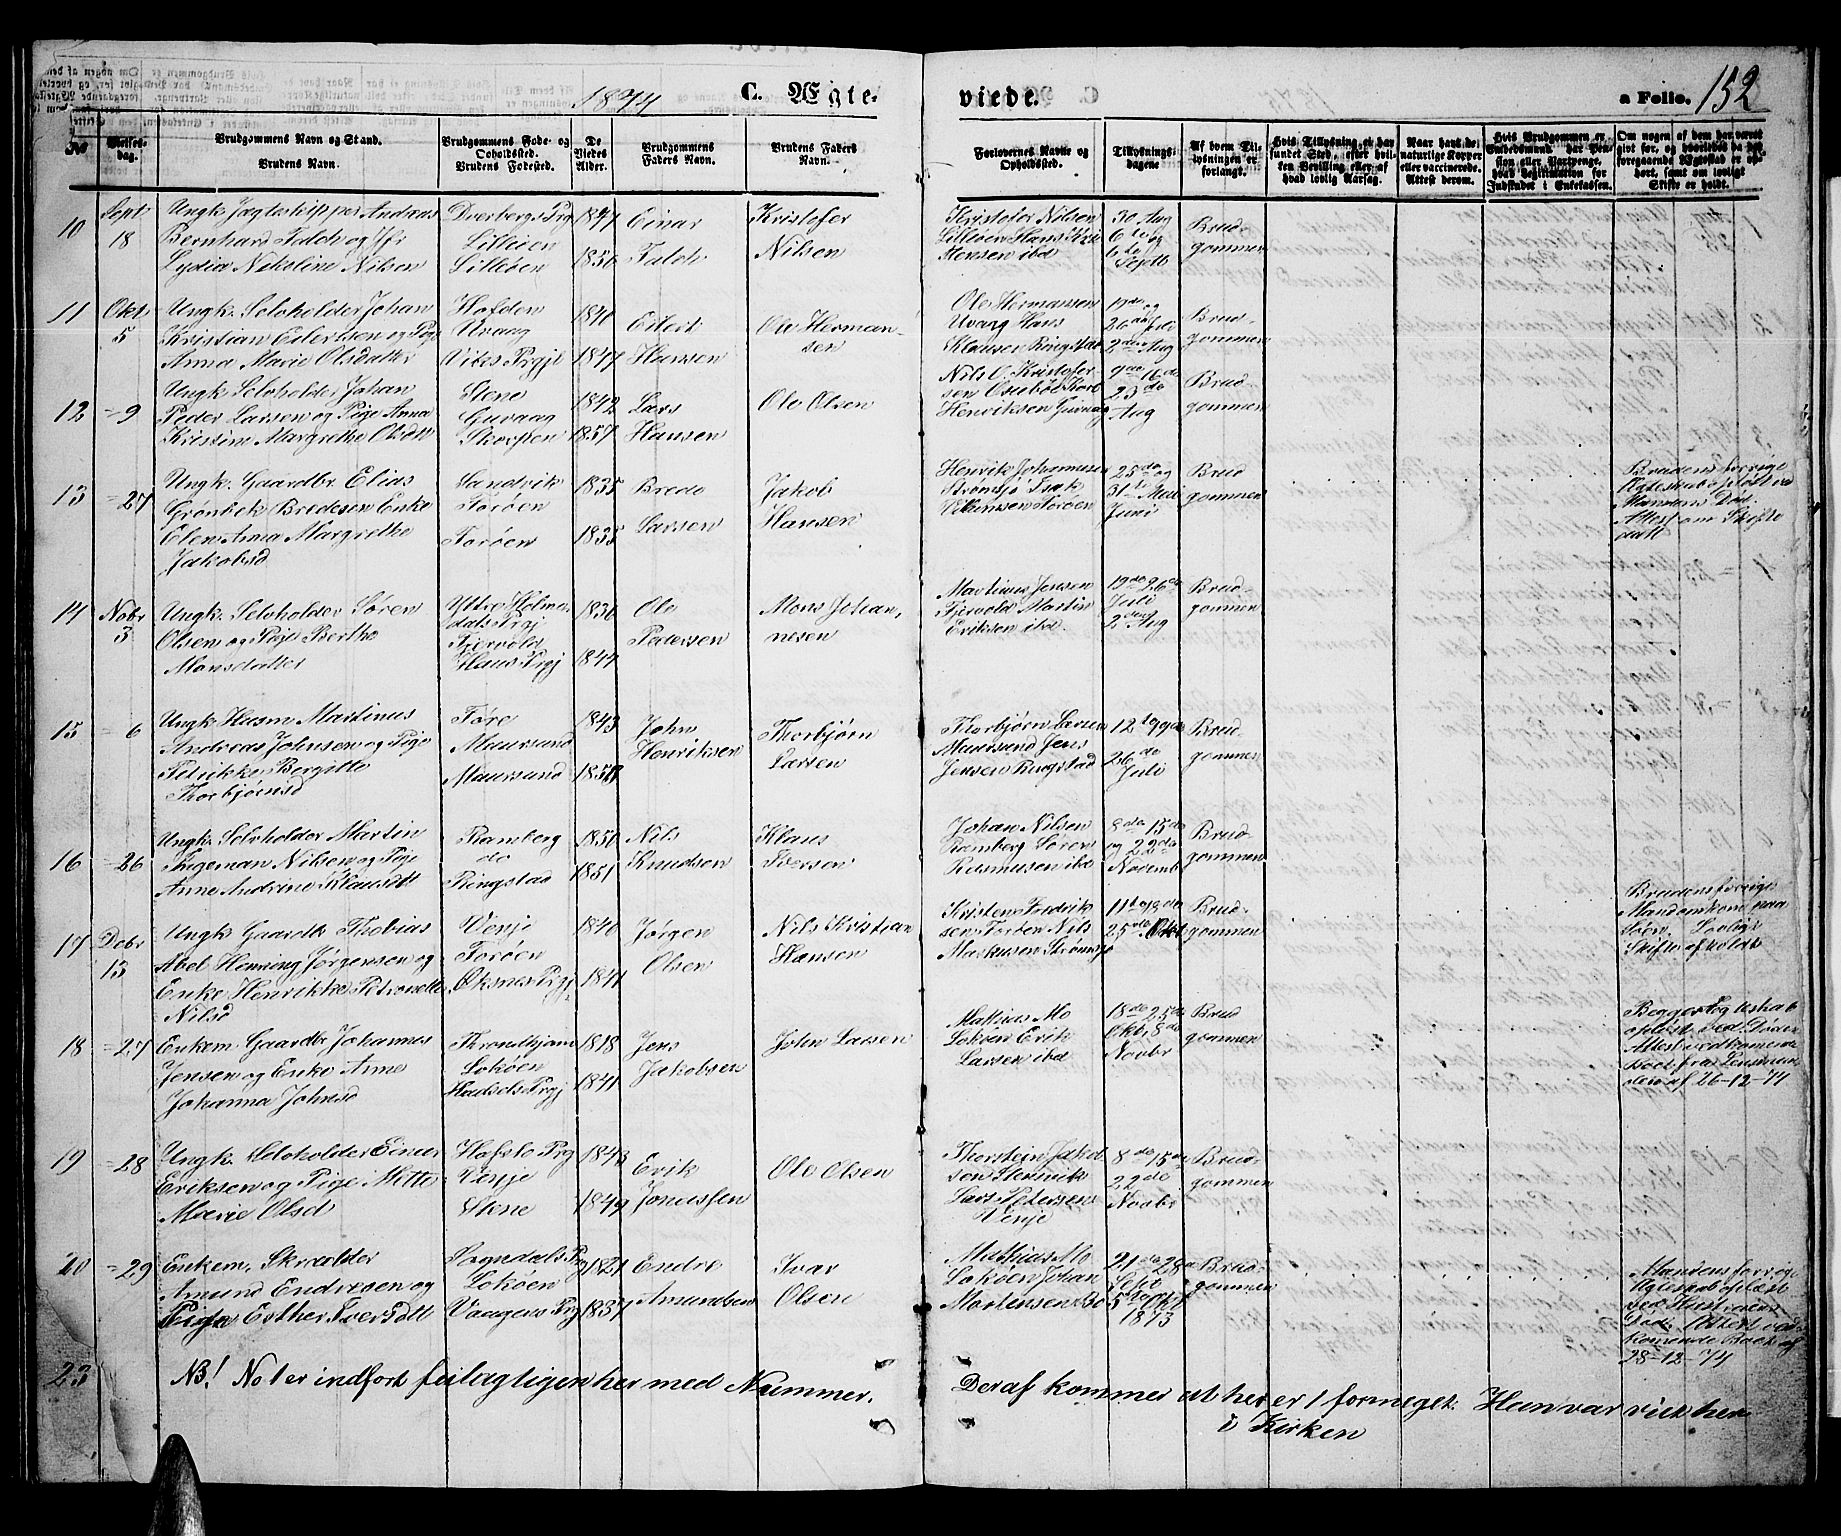 1874
C. Ægte-
viede.
a Folio. 152
No
Vielses-
dag.
Brudgommens Navn og Stand.
Brudens Navn.
Brudgommens Føde- og
Opholdssted.
Brudens Fødested.
De
Viedes
Alder.
Brudgommens
Faders Navn.
Brudens Faders
Navn.
Forlovernes Navne og
Opholdssted.
Tillysnings-
dagene
Af hvem Til-
lysningen er
forlangt.
Hvis Tillysning ei har
fundet Sted, efter hvil-
ken Bevilling eller af
hvad lovlig Aarsag.
Naar havt de
naturlige Kopper
eller vaccinerede.
Attest derom.
Hvis Brudgommen er
Embedsmand har Pen-
sion eller Vartpenge,
hvad Legitimation for
Indskudet i Enkekassen.
Om nogen af dem har været
givt før, og hvorledes da det
foregaaende Ægteskab er op-
hørt, samt om lovligt
Skifte er holdt.
10
Sept
18
Ungk. Jægteskipper Andreas
Bernhard Falch og Jfr
Lydia Nikoline Nilsen
Dverbergs Prg
Lilleøen
Lilleøen
1841
1850
Einar
Falch
Kristofer
Nilsen
Kristofer Nilsen
Lilleøen Hans Kri
Hensen ibd
30 Aug
6te og
Septb
Brud
gommen
11
Okt
5
Ungk. Selvholder Johan
Kristian Eilertsen og Pige
Anna Marie Olsdatter
Hofden
Uvaag
Viks Prgj
1840
1847
Eilert
Hansen
Ole Herman-
sen
Ole Hermansen
Uvaag Hans
Klausen Ringstad
19de og
26de Juli
2den Aug
Brud-
gommen
12
= 9
Ungk. Selvholder Johan
Peder Larsen og Pige Anna
Kristine Margrethe Olsdt
Stene
Guvaag
Skorpen
1842
1857
Lars
Hansen
Ole Olsen
Nils O. Kristofer-
sen
Henriksen Guvaag
9de 16de
23de
Aug
Brud-
gommen
13
= 27
Ungk. Gaardbr Elias
Grønbek Bredesen Enke
Elen Anna Margrethe
Jakobsd
Sandvik
Forøen
Forøen
1835
1835
Brede
Larsen
Jakob
Hansen
Henrik Johannesen
Strømsjø Isak
Villumsen Forøen
25de og
31te Mai
Juni
Brud
gommen
Brudens forrige
Ægteskab opløst ved
Mandens Død
Attest om Skifte
datt
14
Nobr
3
Ungk. Selvholder Søren
Olsen og Pige Berthe
Monsdatter
Yttre Holme-
dals Prgj
Fjervold
Haus Prgj
1836
1844
Ole
Pedersen
Mons Johan-
nesen
Martinus Jensen
Fjervold Martin
Eriksen ibd.
19de 26de
Juli
2den Aug
Brud-
gommen
15
= 6
Ungk. Husm Martinus
Andreas Johnsen og Pige
Petrikke Bergitte
Thorbjørnsd
Føre
Maursund
Maursund
1843
John
Henriksen
Thorbjørn
Larsen
Thorbjørn Larsen
Maursund Jens
Jensen Ringstad
12te 19de
26de
Juli
Brud
gommen
16
= 26
Ungk. Selvholder Martin
Nilsen og Pige
Anne Andrine Klausdt
Ramberg
do
Ringstad
1850
1851
Nils
Knudsen
Klaus
Iversen
Johan Nilsen
Ramberg Søren
Rasmussen ibd
8de 15de
og 22de
Novemb
Brud
gommen
17
Debr
13
Ungk. Gaardb Thobias
Abel Henning Jørgensen og
Enke Henrikke Petronelle
Nilsd
Vinje
Forøen
Øksnes Prgj
1840
1841
Jørgen
Olsen
Nils Kristian
Hansen
Kristen Fredrik
sen Forøen Nils
Markussen Strømsjø
11te 18de
25de Okt
Brud-
gommen
Brudens forrige
Mand omkom paa
Søen. Lovligt
Skifte afholdt
18
= 27
Enkem. Gaardbr Johannes
Jensen og Enke Anne
Johanna Johnsd
Throndhjem
Sokøen
Hadsels Prgj
1818
1841
Jens
Jakobsen
John Larsen
Mathias Mo
Sokøen Erik
Larsen ibd
18de 25de
Okt, 8de
Novbr
Brud
gommen
Begges Ægteskab
opløst ved Døden
Attest vedkommende
Boet fra Lensman-
den af 26-12-74
19
= 28
Ungk. Selvholder Einar
Eriksen og Pige Mette
Marie Olsd
Hafslo Prg
Vinje
Stene
1843
1849
Erik
Jonassen
Ole Olsen
Thorstein Jakob
sen Stenevik
Lars Petersen
Vinje
8de 15de
22de
Novbr
Brud-
gommen
20
= 29
Enkem. Skræder
Amund Endresen og
Pige Esther Iversdtt
Sogndals Prg
Sokøen
Vaagens Prg
1821
1837
Endre
Amundsen
Ivar
Olsen
Mathias Mo
Sokøen Johan
Mortensen Bø
21de 28de
Sept
5te Okt
1873
Brud-
gommen
Mandens forrige
Ægteskab opløst
ved Hustruens
Død. Attest ved-
kommende Boet af
28-12-74
23
NB! No 1 er indført feilagtigen her med Nummer.
Deraf kommer at her er 1 formeget. Han var viet her
i Kirken